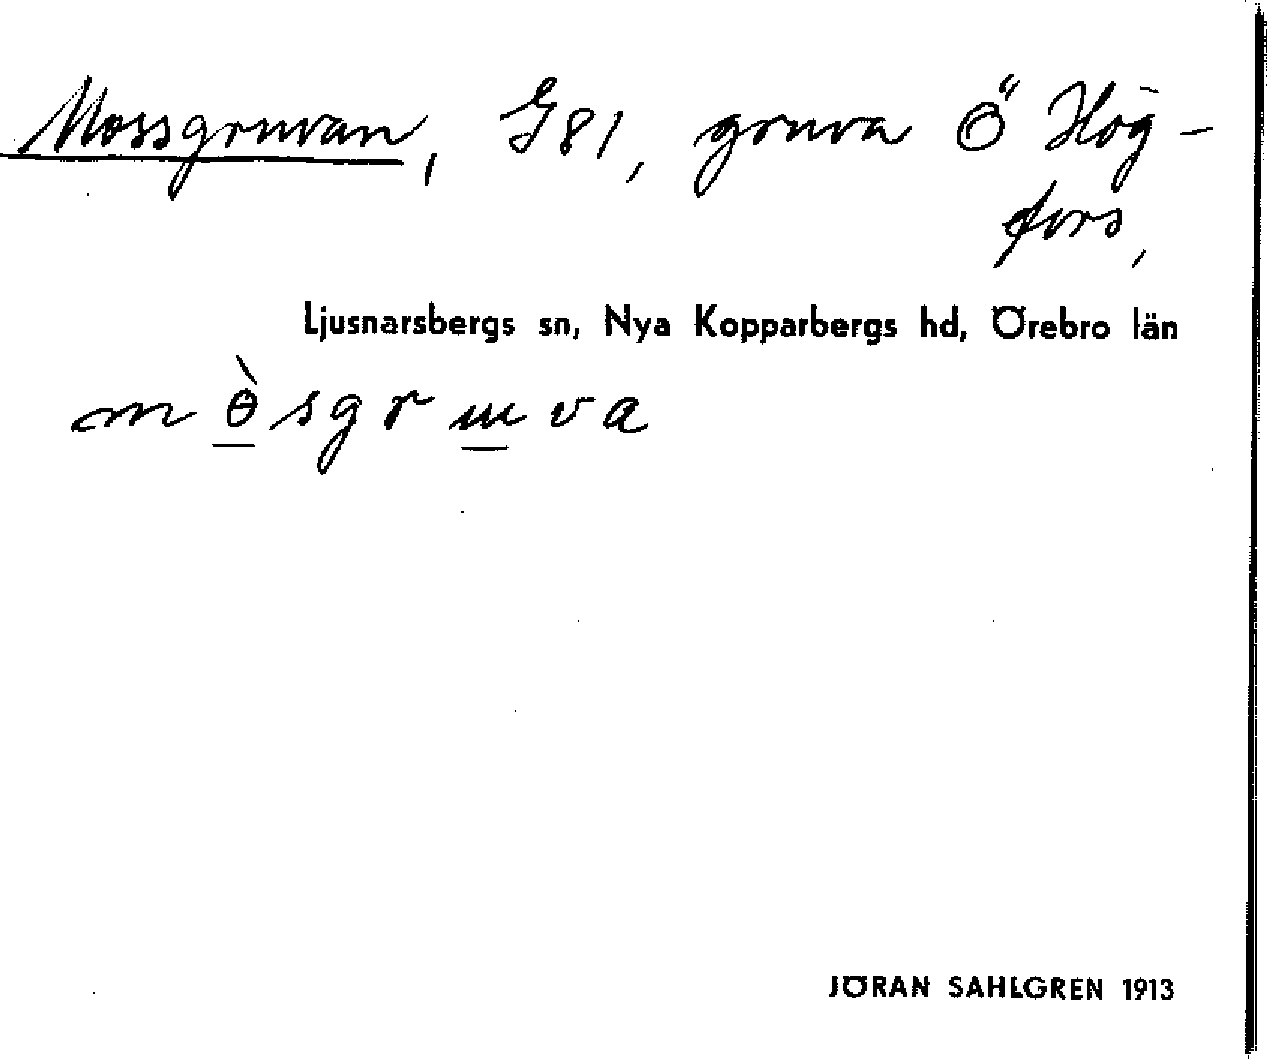 Mossgruvan, G81, gruva Ö Hög-
fors,
Ljusnarsbergs sn, Nya Kopparbergs hd, Örebro län
mɵ̀sgrɯva
JÖRAN SAHLGREN 1913